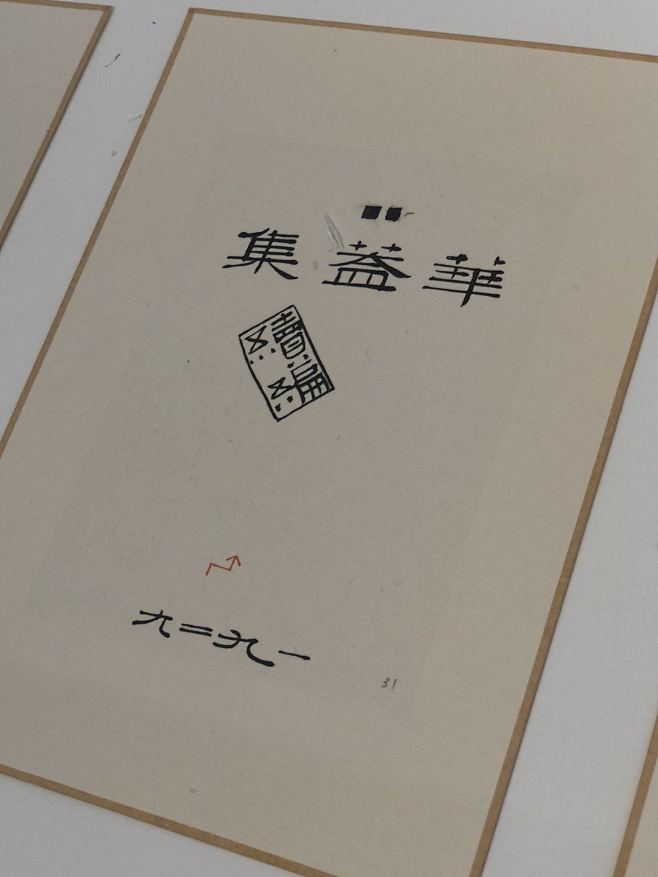 華葢集
續編
一九二九
31